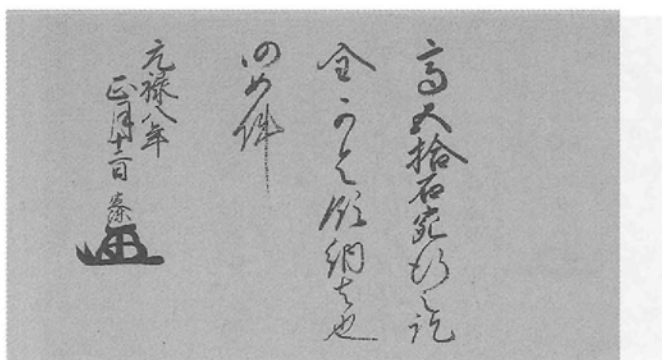 高五拾石宛行之訖
全可令領納者也
仍如件
元禄八年
正月十二日 泰